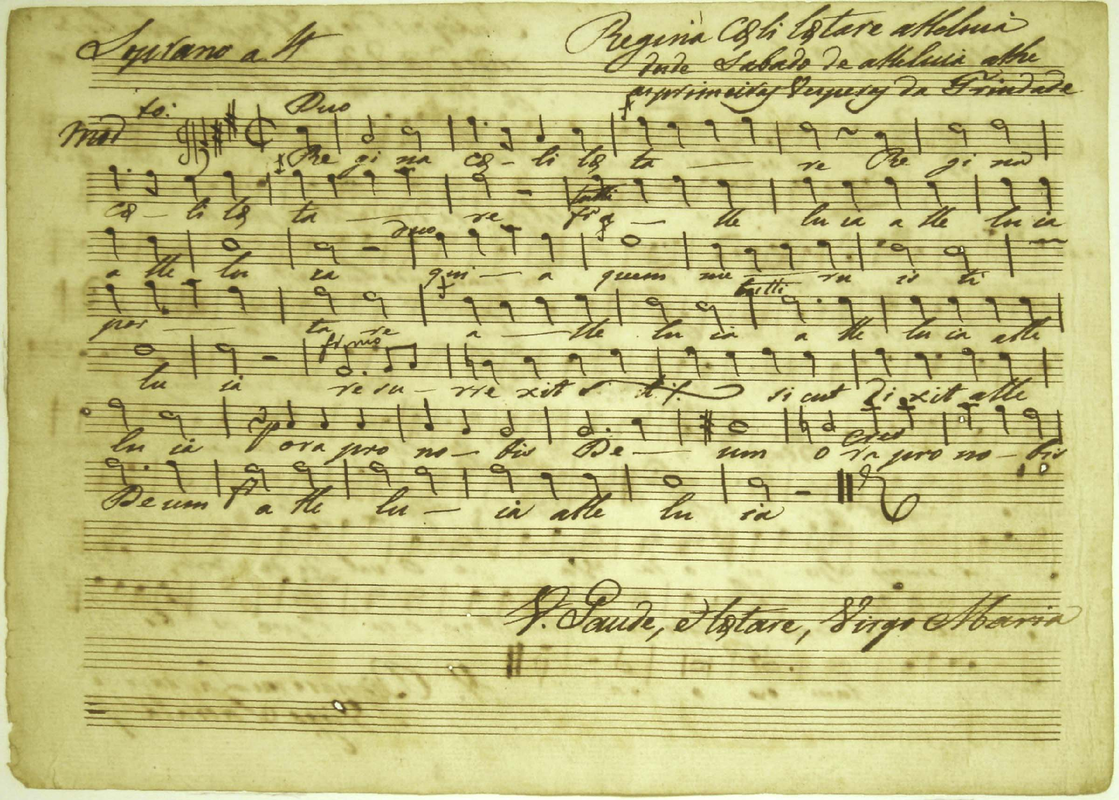 Soprano a 4
Regina Cæli lætare alleluia
dsde Sabado de alleluia athe
as primeiras Vesperas da Trindade
Mod to: Duo
Re gi na cæ - li læ ta — re Re gi na
cæ - li læ ta — re tutti fr a — lle lu ia a lle lu ia
a lle lu ia duo qui - a quem me — ru is ti
por — ta re a — lle lu ia tutti a lle lu ia alle
lu ia resu - rre xit si cut di xit alle
lu ia P ora pro no - bis De — um O cres ra pro no - bis
De um fr a lle lu - ia alle lu ia
V. Gaude, et lætare, Virgo Maria